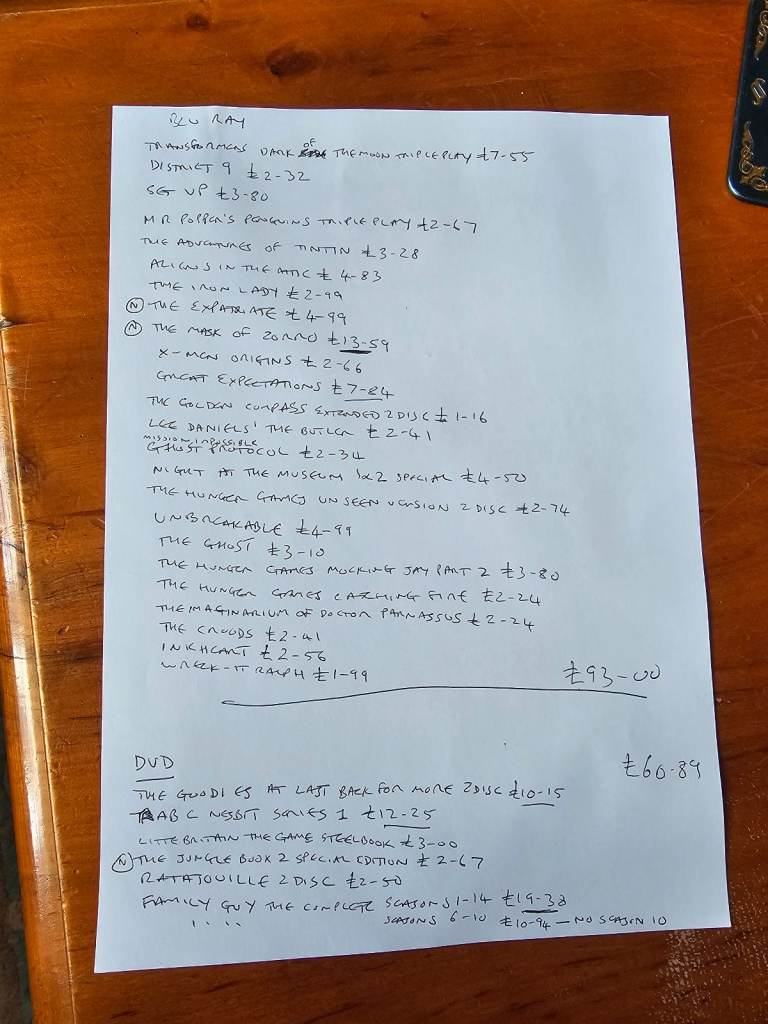 BLU RAY
TRANSFORMERS DARK OF THE MOON TRIPLE PLAY £7-55
DISTRICT 9 £2-32
SET UP £3-80
MR POPPER'S PENGUINS TRIPLE PLAY £2-67
THE ADVENTURES OF TINTIN £3-28
ALIENS IN THE ATTIC £4-83
THE IRON LADY £2-99
(N) THE EXPATRIATE £4-99
(N) THE MASK OF ZORRO £13-59
X-MEN ORIGINS £2-66
GREAT EXPECTATIONS £7-84
THE GOLDEN COMPASS EXTENDED 2 DISC £1-16
LEE DANIELS' THE BUTLER £2-41
MISSION IMPOSSIBLE
GHOST PROTOCOL £2-34
NIGHT AT THE MUSEUM 1&2 SPECIAL £4-50
THE HUNGER GAMES UNSEEN VERSION 2 DISC £2-74
UNBREAKABLE £4-99
THE GHOST £3-10
THE HUNGER GAMES MOCKING JAY PART 2 £3-80
THE HUNGER GAMES CATCHING FIRE £2-24
THE IMAGINARIUM OF DOCTOR PARNASSUS £2-24
THE CROODS £2-41
INKHEART £2-56
WRECK-IT RALPH £1-99
£93-00
DVD
£60-89
THE GOODIES AT LAST BACK FOR MORE 2 DISC £10-15
RAB C NESBIT SERIES 1 £12-25
LITTE BRITAIN THE GAME STEELBOOK £3-00
(N) THE JUNGLE BOOK 2 SPECIAL EDITION £2-67
RATATOUILLE 2 DISC £2-50
FAMILY GUY THE COMPLETE SEASONS 1-14 £19-38
" " SEASONS 6-10 £10-94 - NO SEASON 10